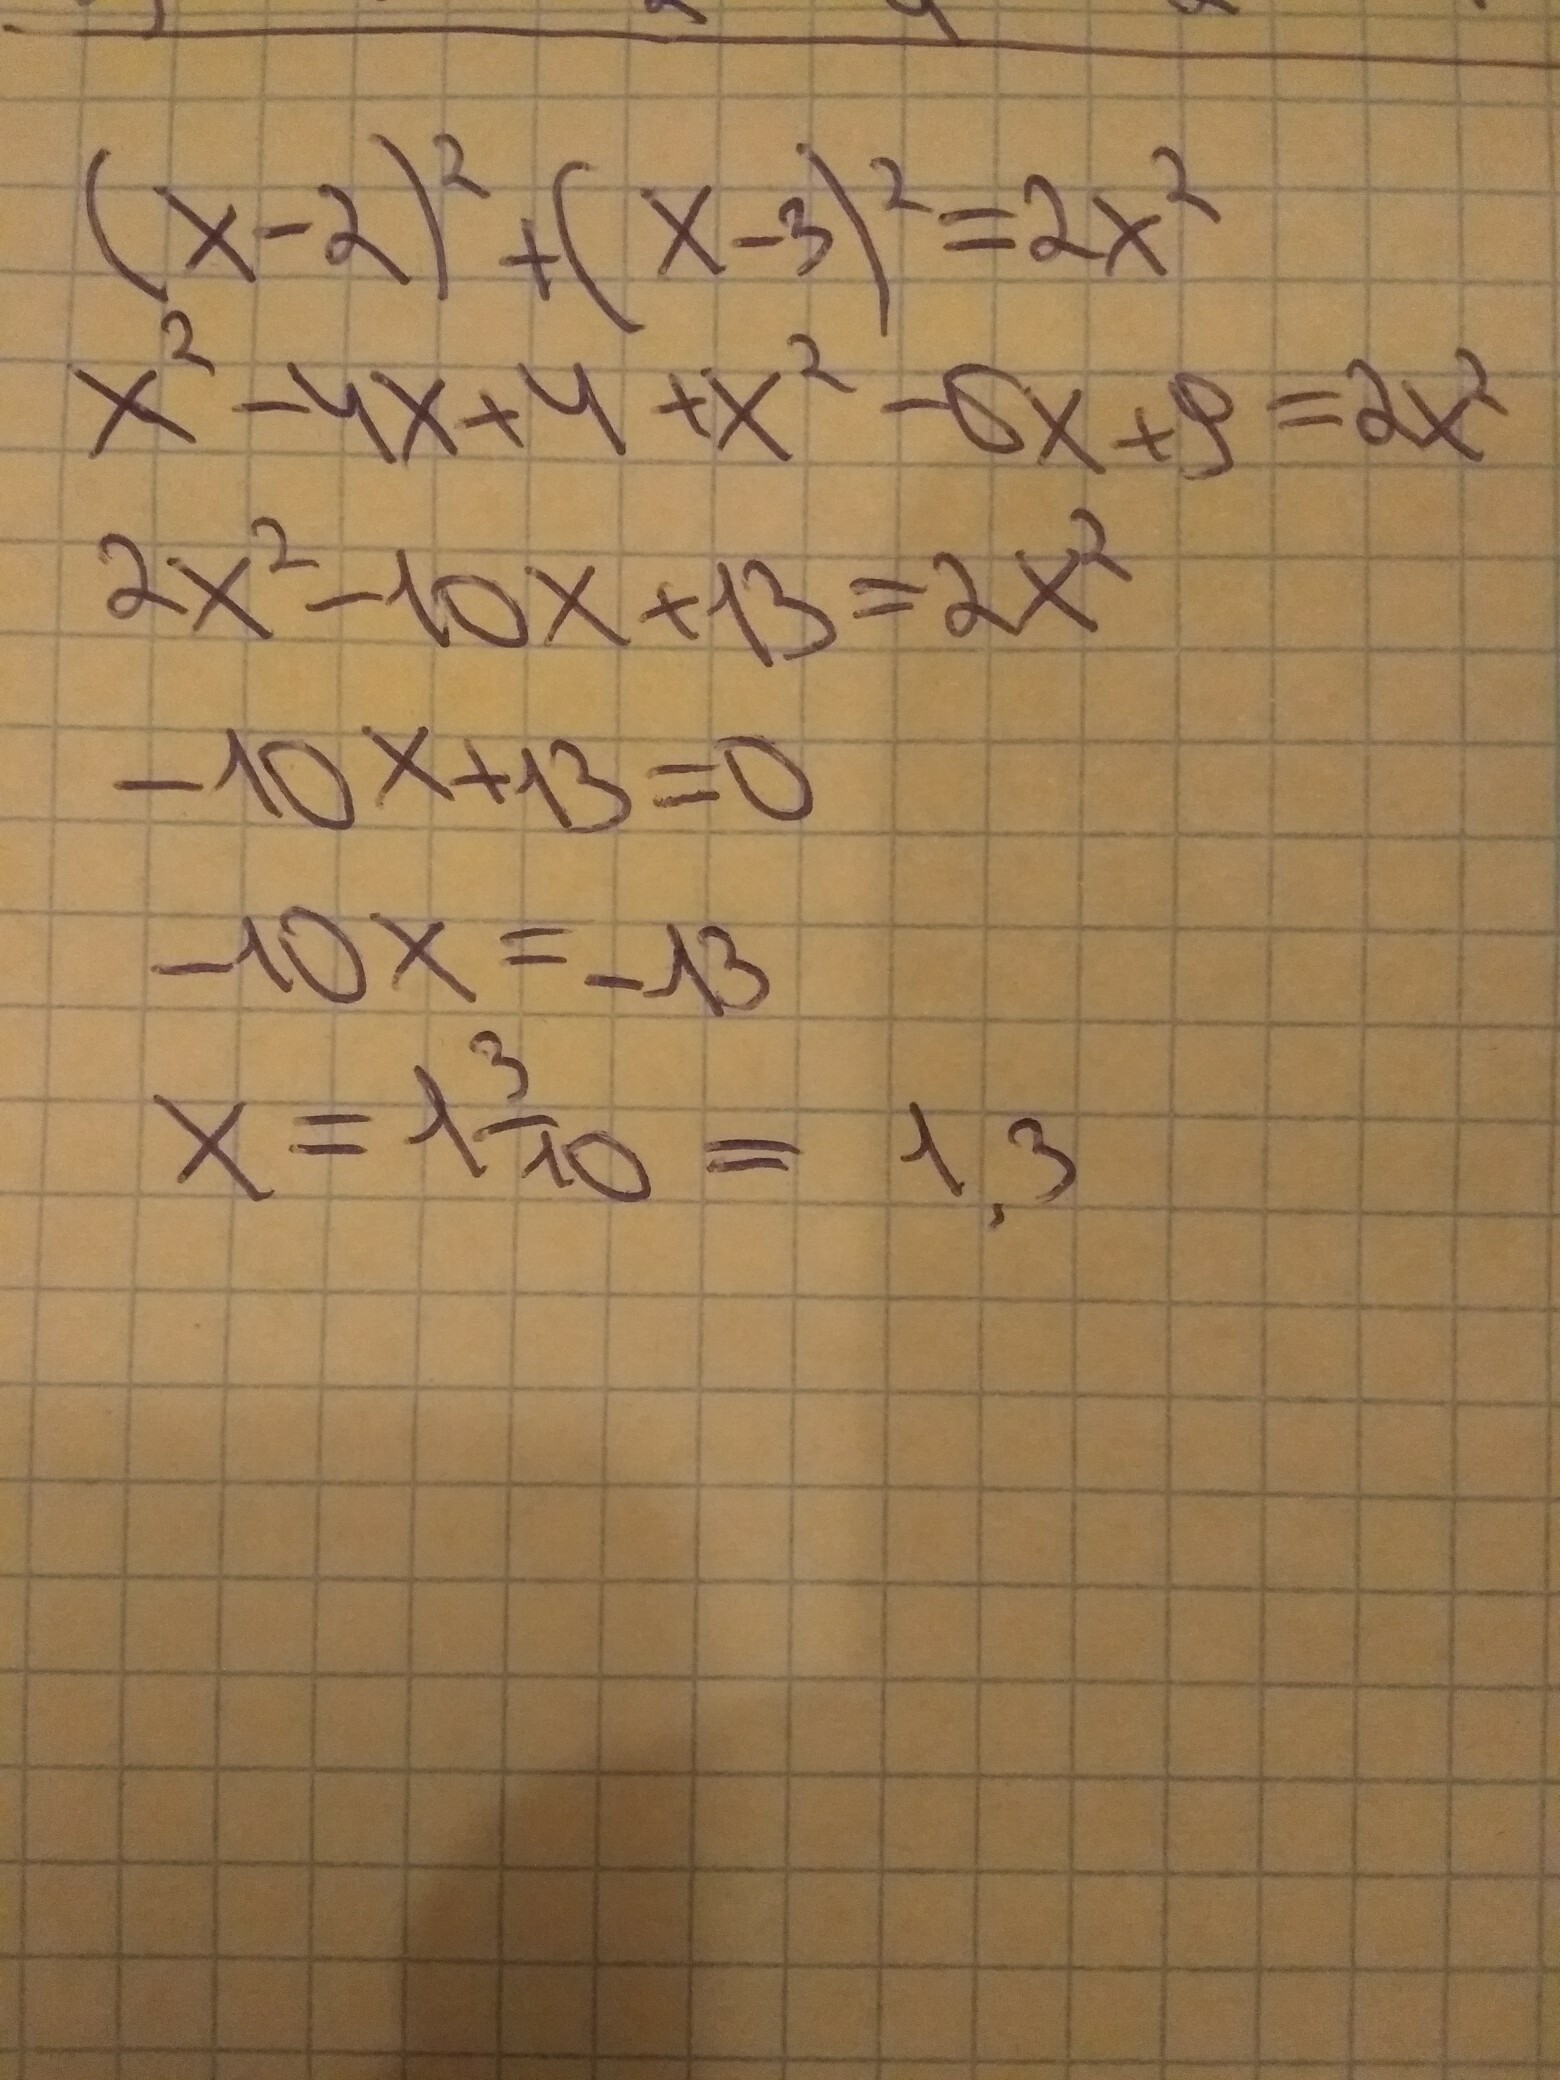 (x-2)²+(x-3)²=2x²
x²-4x+4+x²-6x+9=2x²
2x²-10x+13=2x²
-10x+13=0
-10x=-13
x=1 3/10 = 1,3